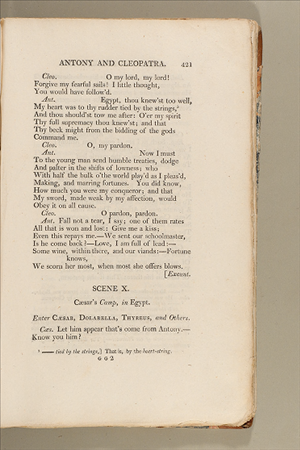 ANTONY AND CLEOPATRA. 421
Cleo. O my lord, my lord!
Forgive my fearful sails! I little thought,
You would have follow'd.
Ant. Egypt, thou knew'st too well,
My heart was to thy rudder tied by the strings,⁵
And thou should'st tow me after: O'er my spirit
Thy full supremacy thou knew'st; and that
Thy beck might from the bidding of the gods
Command me.
Cleo. O, my pardon.
Ant. Now I must
To the young man send humble treaties, dodge
And palter in the shifts of lowness; who
With half the bulk o'the world play'd as I pleas'd,
Making, and marring fortunes. You did know,
How much you were my conqueror; and that
My sword, made weak by my affection, would
Obey it on all cause.
Cleo. O pardon, pardon.
Ant. Fall not a tear, I say; one of them rates
All that is won and lost: Give me a kiss;
Even this repays me.—We sent our schoolmaster,
Is he come back?—Love, I am full of lead:—
Some wine, within there, and our viands:—Fortune
knows,
We scorn her most, when most she offers blows.
[Exeunt.
SCENE X.
Cæsar's Camp, in Egypt.
Enter CÆSAR, DOLABELLA, THYREUS, and Others.
Cæs. Let him appear that's come from Antony.—
Know you him?
⁵ —— tied by the strings,] That is, by the heart-string.